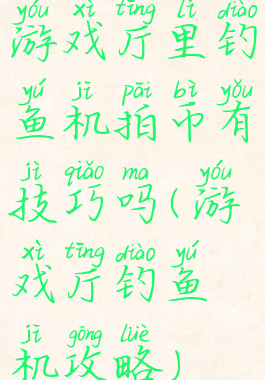 yóu xì tīng lǐ diào
游戏厅里钓
yú jī pāi bì yǒu
鱼机拍币有
jì qiǎo ma yóu
技巧吗(游
xì tīng diào yú
戏厅钓鱼
jī gōng lüè
机攻略)